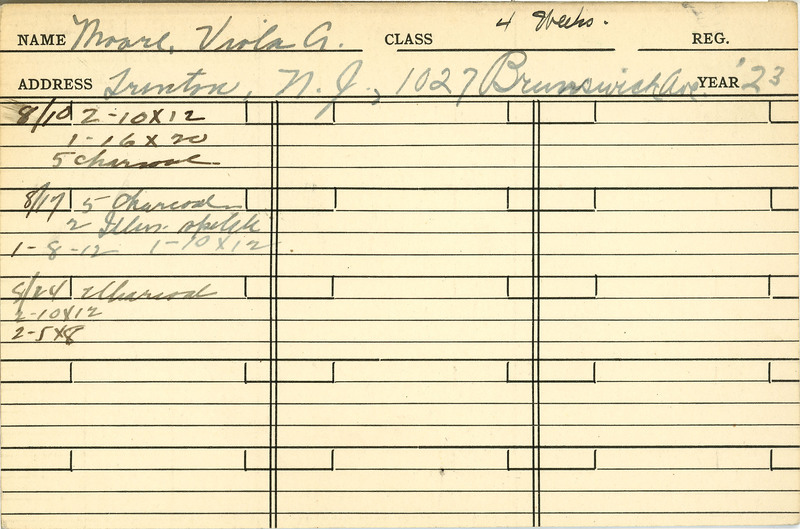 NAME Moore, Viola A. CLASS 4 Weeks. REG.
ADDRESS Trenton, N. J., 1027 Brunswick Ave. YEAR '23
8/10 2-10x12
1-16x20
5 charcoal
8/17 5 charcoal
2 Illus.
1-8-12 1-10x12.
8/24 charcoal
2-10x12
2-5x8